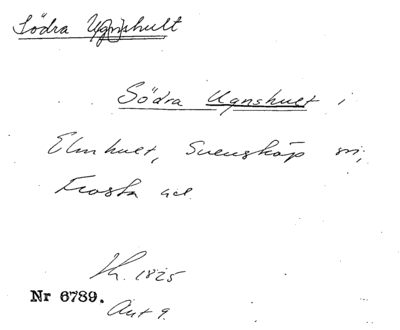 Södra Ug(n)shult
Södra Ugnshult i
Elmhult, Svensköp sn,
Frosta hd.
Kh. 1825
Nr 6789.
Akt 9.